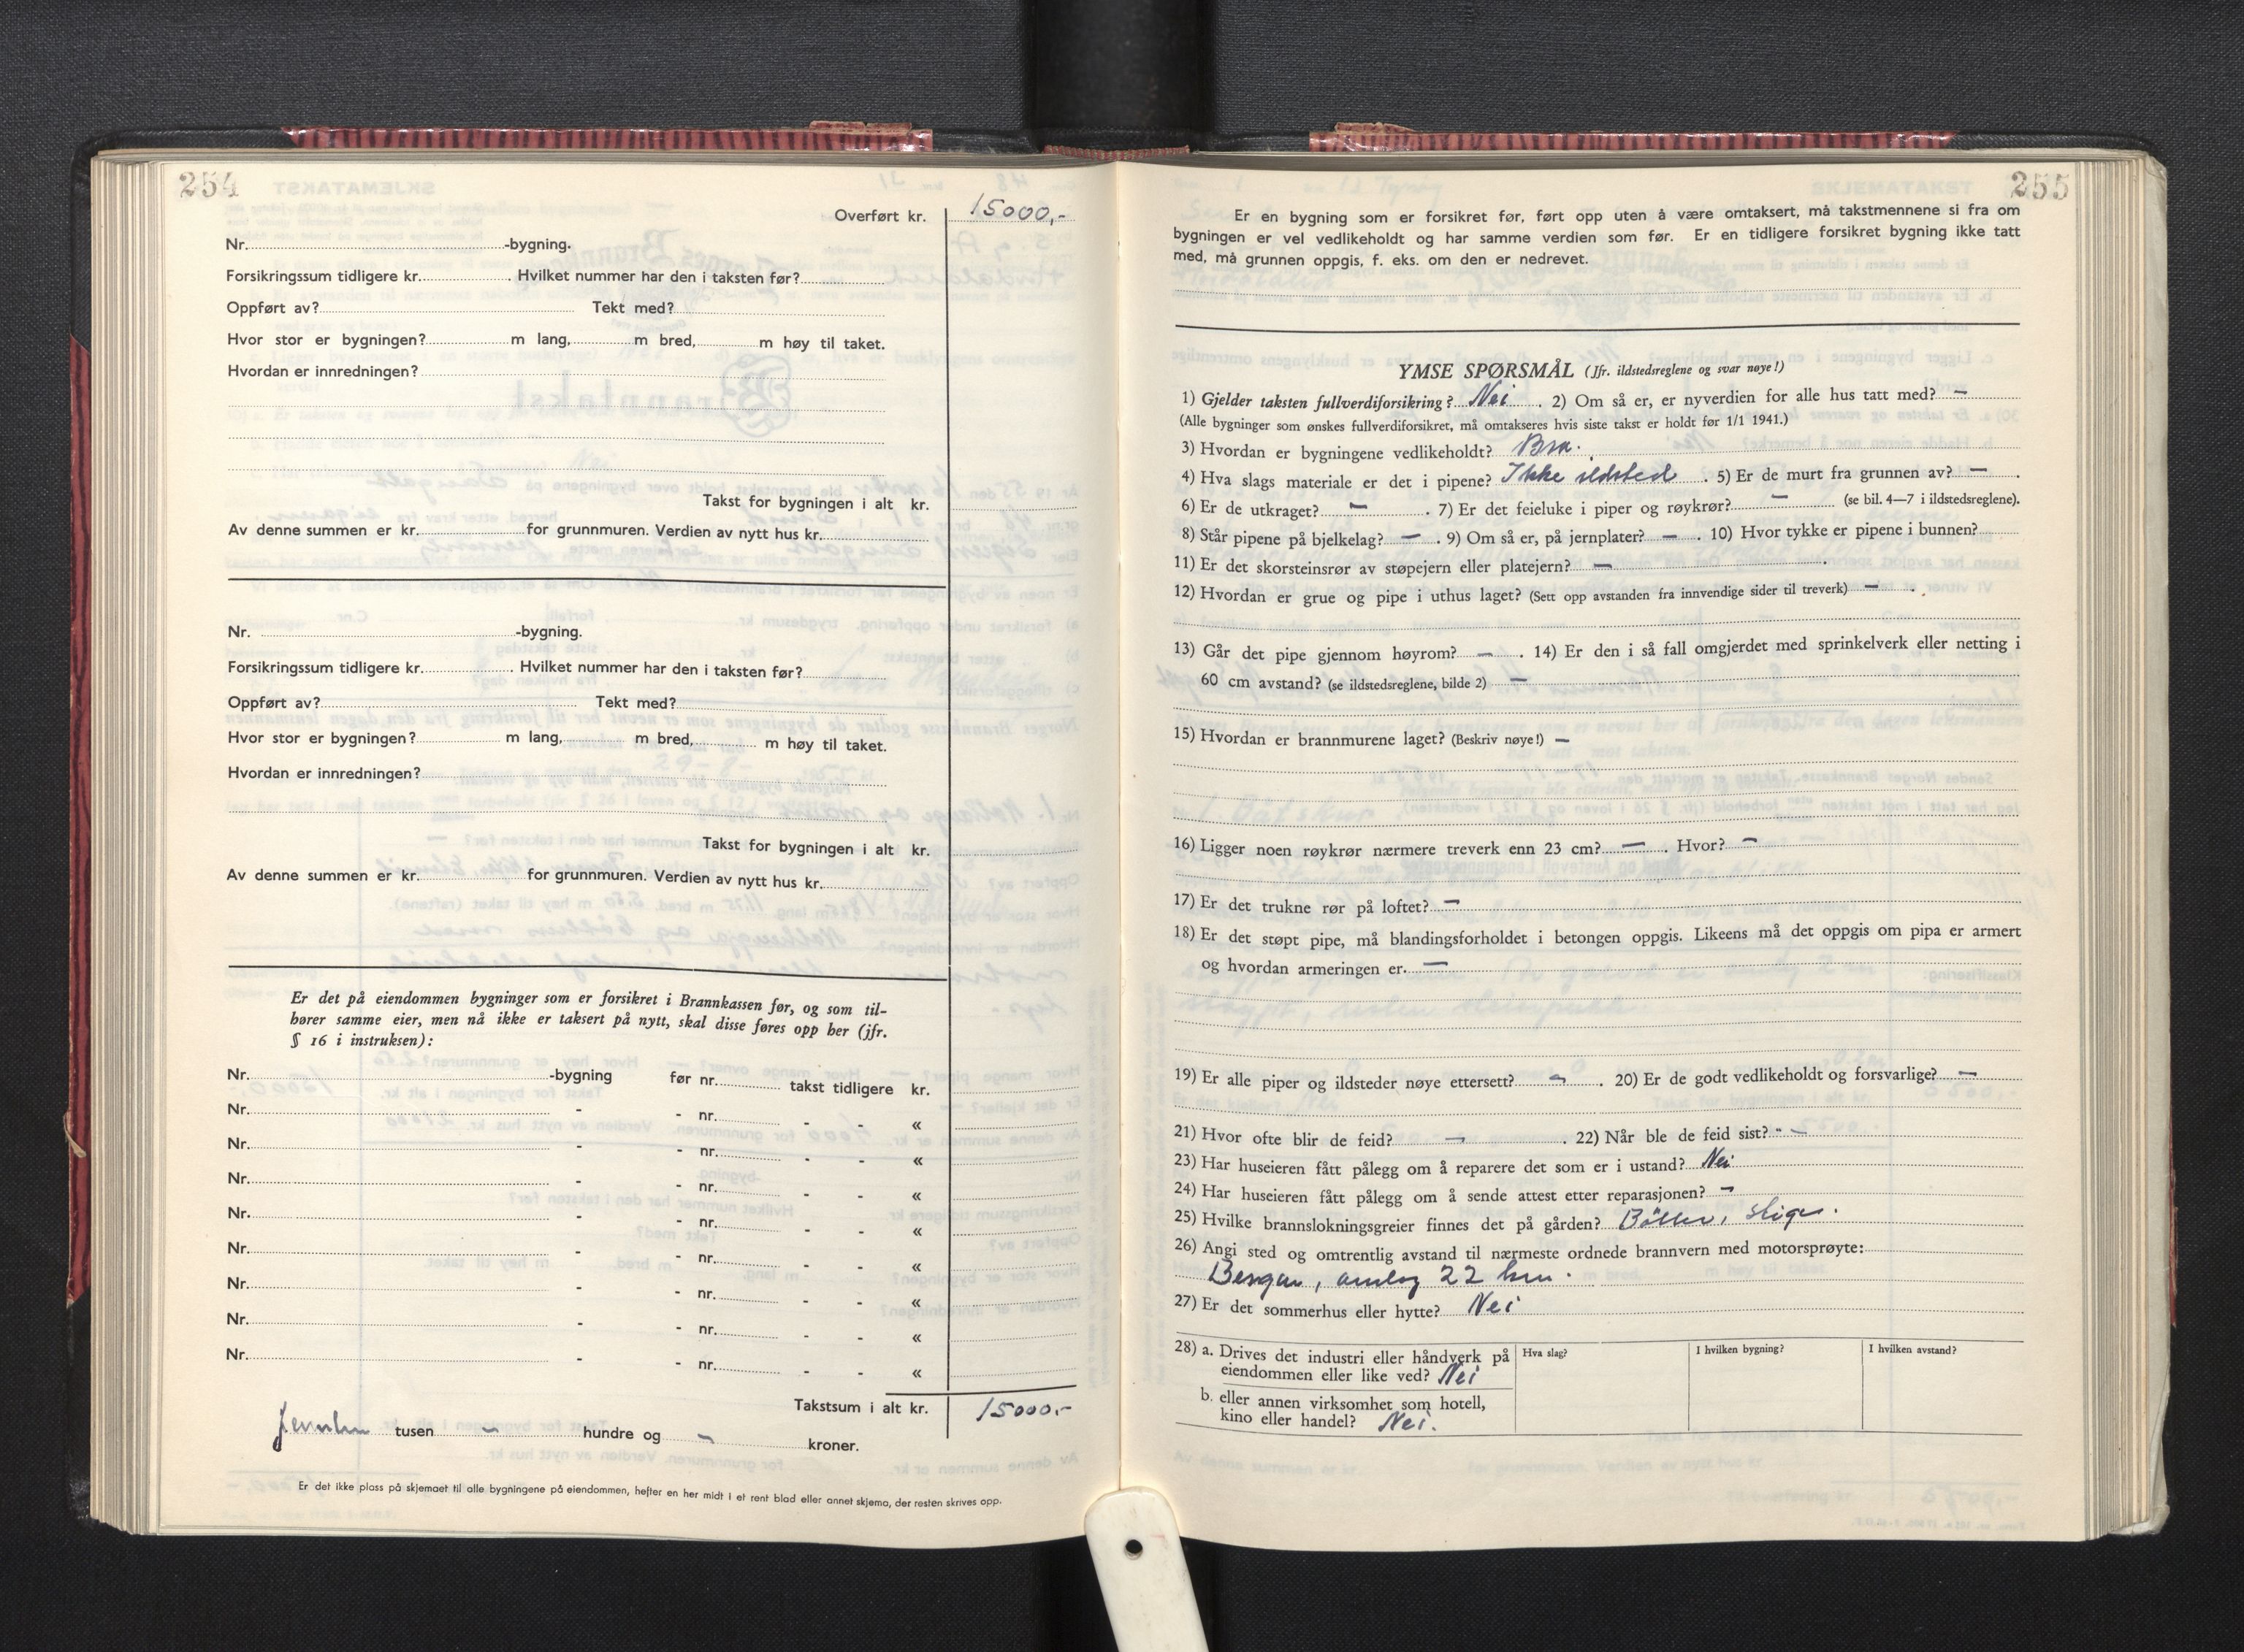 254
Overført kr. 15000,-
Nr. -bygning.
Forsikringssum tidligere kr. . Hvilket nummer har den i taksten før?
Oppført av? Tekt med?
Hvor stor er bygningen? m lang, m bred, m høy til taket.
Hvordan er innredningen?
Takst for bygningen i alt kr.
Av denne summen er kr. for grunnmuren. Verdien av nytt hus kr.
Nr. -bygning.
Forsikringssum tidligere kr. . Hvilket nummer har den i taksten før?
Oppført av? Tekt med?
Hvor stor er bygningen? m lang, m bred, m høy til taket.
Hvordan er innredningen?
Takst for bygningen i alt kr.
Av denne summen er kr. for grunnmuren. Verdien av nytt hus kr.
Er det på eiendommen bygninger som er forsikret i Brannkassen før, og som til-
hører samme eier, men nå ikke er taksert på nytt, skal disse føres opp her (jfr.
§ 16 i instruksen):
Nr. -bygning før nr. takst tidligere kr.
Nr. - - nr. - - «
Nr. - - nr. - - «
Nr. - - nr. - - «
Nr. - - nr. - - «
Nr. - - nr. - - «
Nr. - - nr. - - «
Nr. - - nr. - - «
Nr. - - nr. - - «
Takstsum i alt kr. 15000,-
femten tusen - hundre og - kroner.
Er det ikke plass på skjemaet til alle bygningene på eiendommen, hefter en her midt i et rent blad eller annet skjema, der resten skrives opp.
255
Er en bygning som er forsikret før, ført opp uten å være omtaksert, må takstmennene si fra om
bygningen er vel vedlikeholdt og har samme verdien som før. Er en tidligere forsikret bygning ikke tatt
med, må grunnen oppgis, f. eks. om den er nedrevet.
YMSE SPØRSMÅL (Jfr. ildstedsreglene og svar nøye!)
1) Gjelder taksten fullverdiforsikring? Nei . 2) Om så er, er nyverdien for alle hus tatt med? —
(Alle bygninger som ønskes fullverdiforsikret, må omtakseres hvis siste takst er holdt før 1/1 1941.)
3) Hvordan er bygningene vedlikeholdt? Bra.
4) Hva slags materiale er det i pipene? Ikke ildsted . 5) Er de murt fra grunnen av? — .
6) Er de utkraget? — . 7) Er det feieluke i piper og røykrør? — (se bil. 4—7 i ildstedsreglene).
8) Står pipene på bjelkelag? — . 9) Om så er, på jernplater? — . 10) Hvor tykke er pipene i bunnen?
11) Er det skorsteinsrør av støpejern eller platejern? — .
12) Hvordan er grue og pipe i uthus laget? (Sett opp avstanden fra innvendige sider til treverk) — .
13) Går det pipe gjennom høyrom? — . 14) Er den i så fall omgjerdet med sprinkelverk eller netting i
60 cm avstand? (se ildstedsreglene, bilde 2) —
15) Hvordan er brannmurene laget? (Beskriv nøye!) —
16) Ligger noen røykrør nærmere treverk enn 23 cm? — . Hvor? —
17) Er det trukne rør på loftet? —
18) Er det støpt pipe, må blandingsforholdet i betongen oppgis. Likeens må det oppgis om pipa er armert
og hvordan armeringen er. —
19) Er alle piper og ildsteder nøye ettersett? — . 20) Er de godt vedlikeholdt og forsvarlige? —
21) Hvor ofte blir de feid? — . 22) Når ble de feid sist? - —
23) Har huseieren fått pålegg om å reparere det som er i ustand? Nei
24) Har huseieren fått pålegg om å sende attest etter reparasjonen? —
25) Hvilke brannslokningsgreier finnes det på gården? Bøtter, stiger.
26) Angi sted og omtrentlig avstand til nærmeste ordnede brannvern med motorsprøyte:
Bergen, omlag 22 km.
27) Er det sommerhus eller hytte? Nei
28) a. Drives det industri eller håndverk på
eiendommen eller like ved? Nei
Hva slag?
I hvilken bygning?
I hvilken avstand?
b. eller annen virksomhet som hotell,
kino eller handel? Nei.